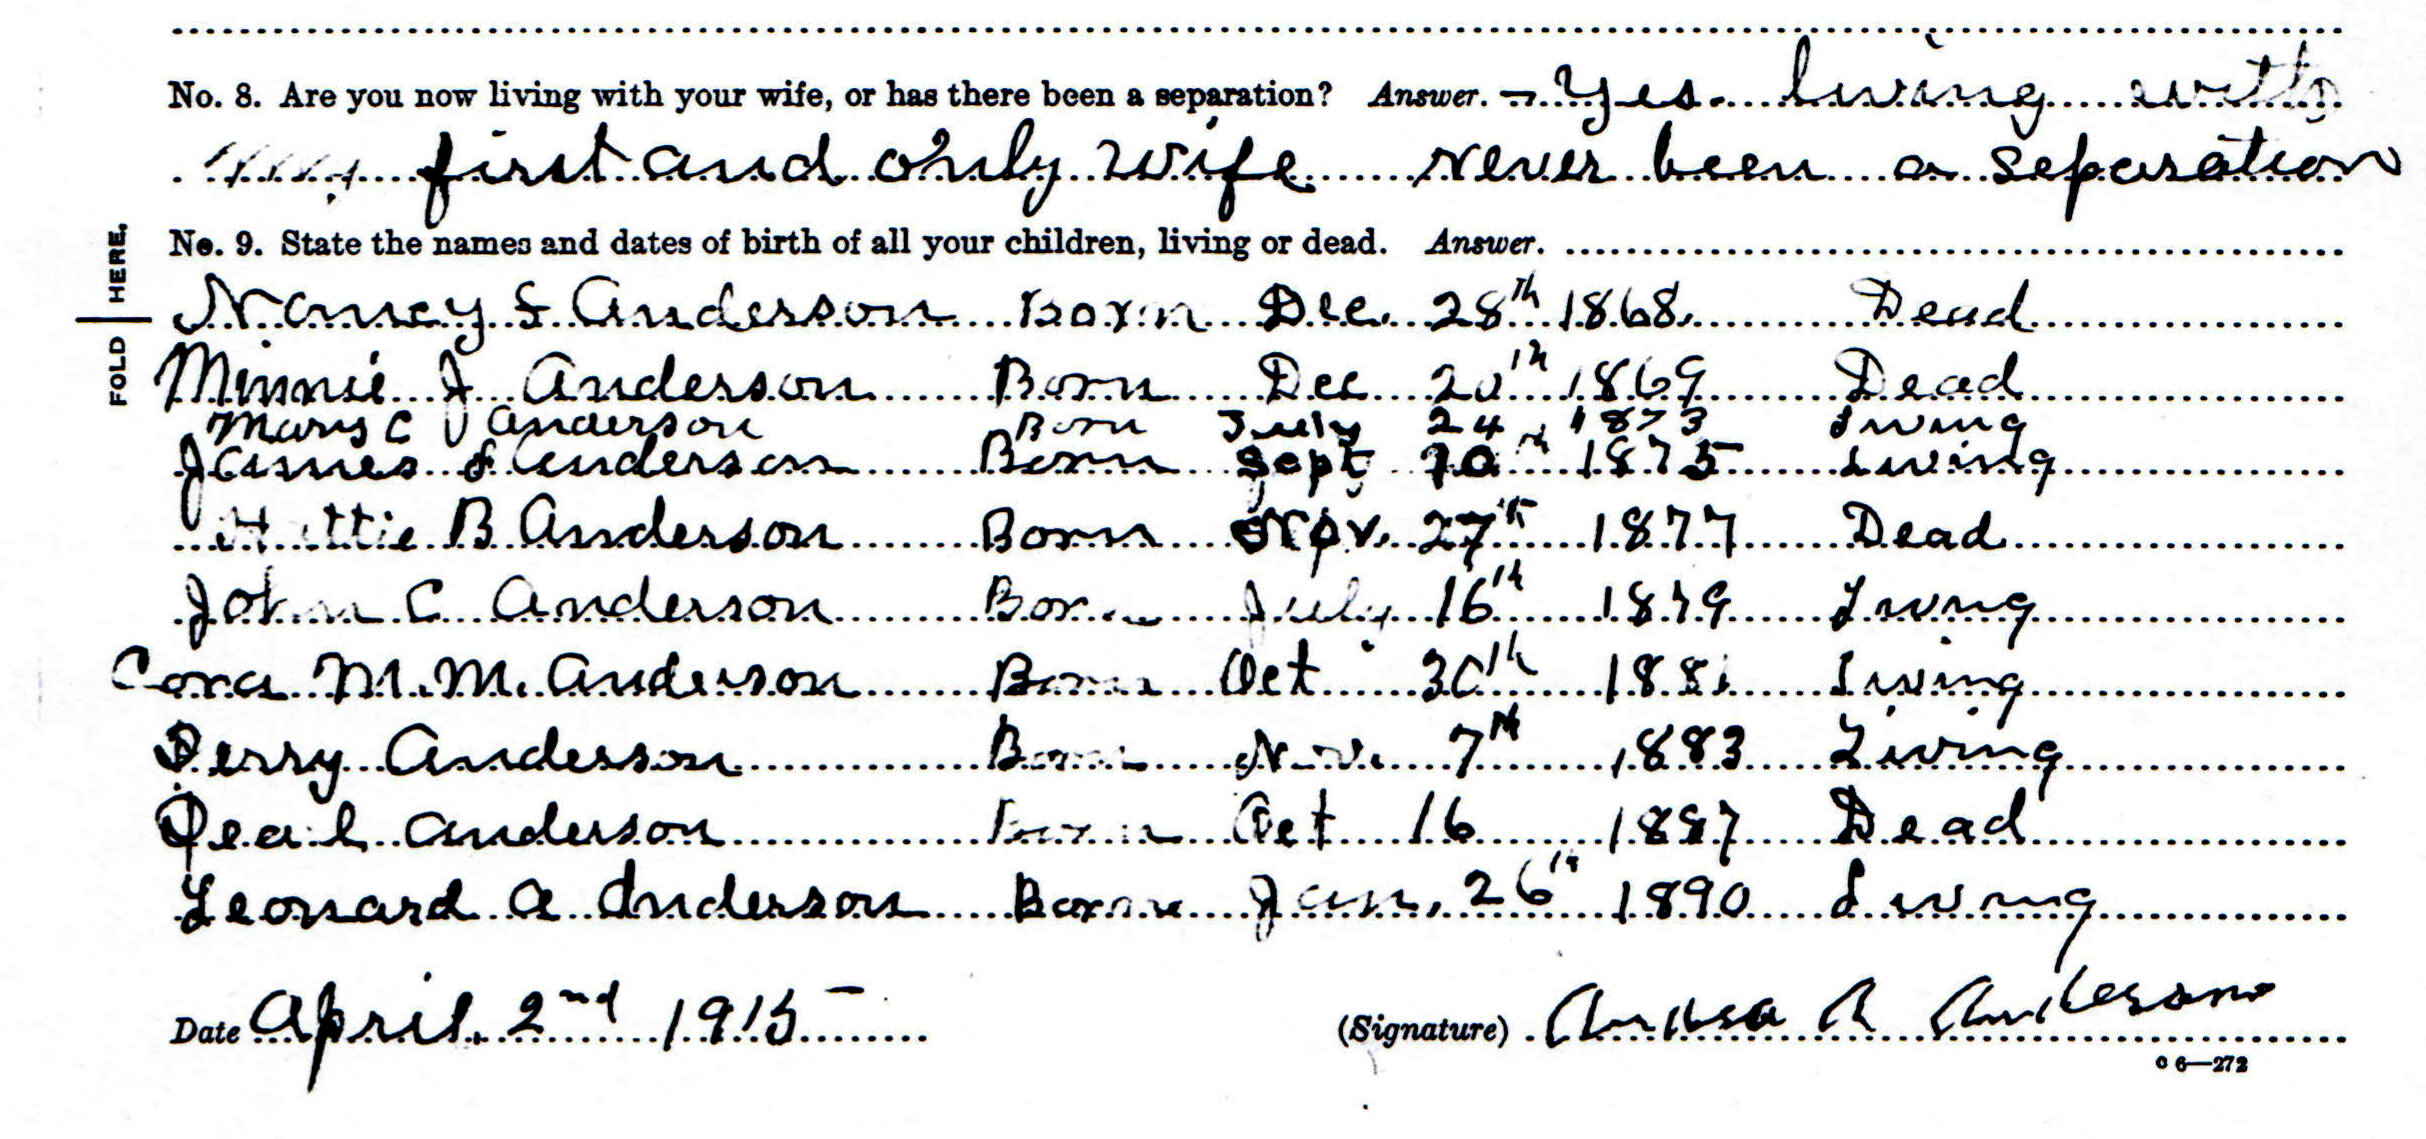 No. 8. Are you now living with your wife, or has there been a separation? Answer. - Yes. living with
my first and only wife never been a separation
No. 9. State the names and dates of birth of all your children, living or dead. Answer.
FOLD HERE.
Nancy S Anderson Born Dec. 28th 1868. Dead
Minnie J Anderson Born Dec 20th 1869 Dead
Mary C Anderson Born July 24 1873 Living
James Anderson Born Sept 1875 Living
Hattie B Anderson Born Nov. 27th 1877 Dead
John C Anderson Born July 16th 1879 Living
Cora M. M. Anderson Born Oct 30th 1881 Living
Perry Anderson Born Nov. 7th 1883 Living
Pearl Anderson Born Oct 16 1887 Dead
Leonard A Anderson Born Jan. 26th 1890 Living
Date April. 2nd 1915
(Signature) Anderson
6—272